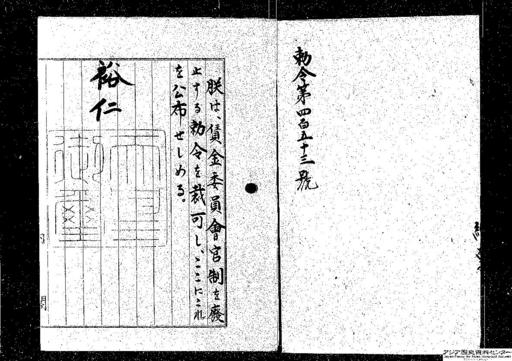 勅令第四百五十三號
朕は、賃金委員會官制を廢
止する勅令を裁可し、ここにこれ
を公布せしめる。
裕仁
御璽
月
アジア歴史資料センター